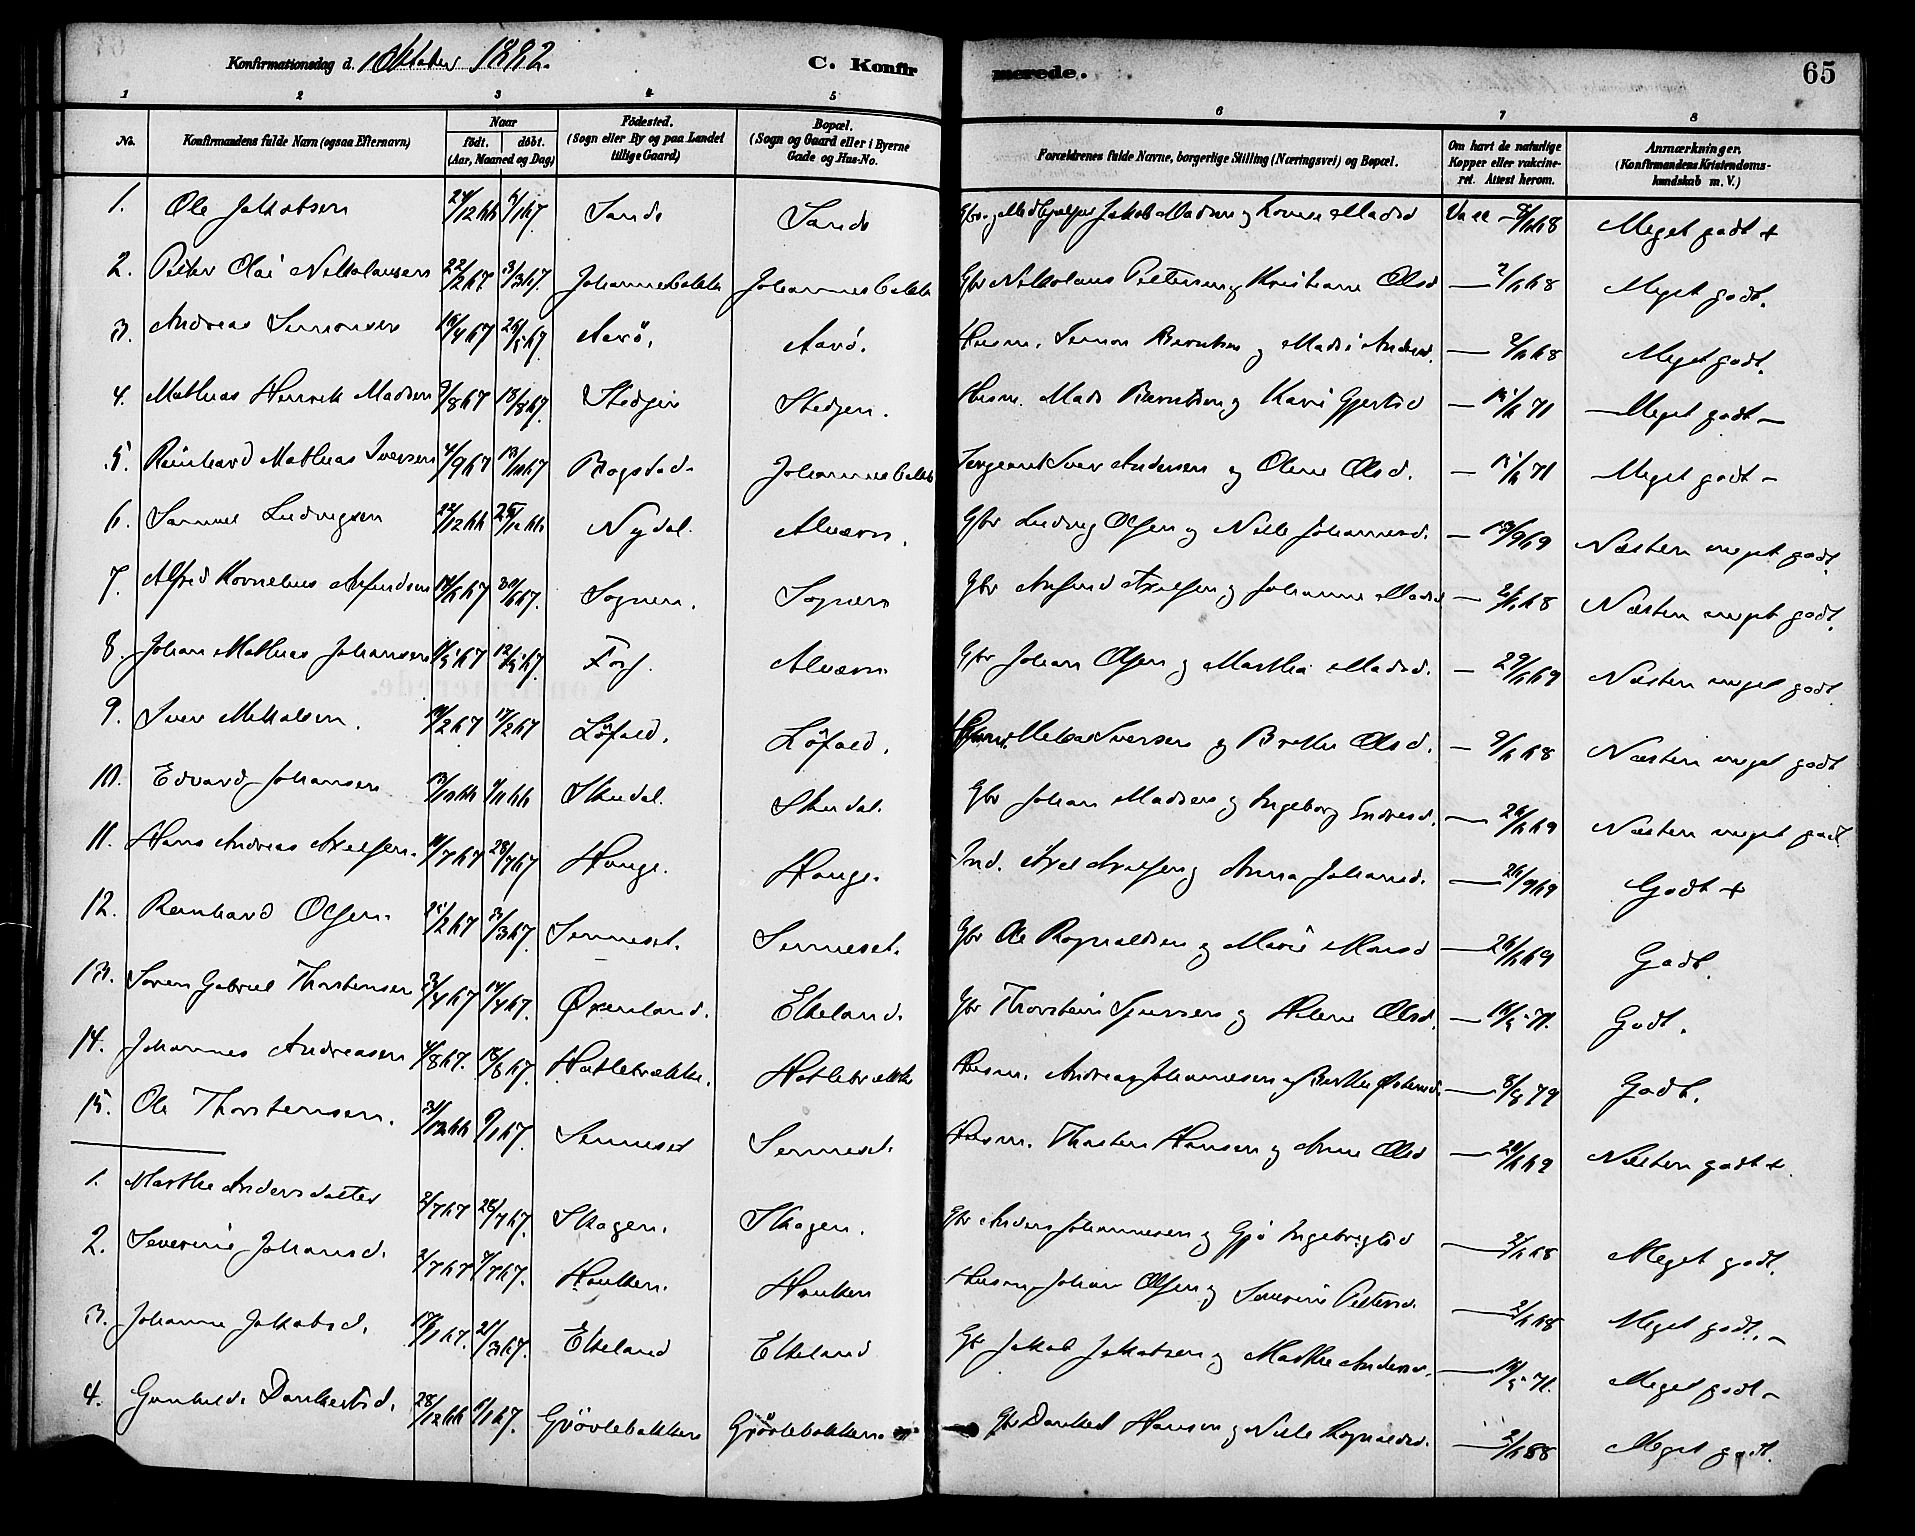 Konfirmationsdag d. 1 Oktober 1882. C. Konfirmerede. 65
1 2 3 4 5 6 7 8
No. Konfirmandens fulde Navn (ogsaa Efternavn) Naar födt. döbt. (Aar, Maaned og Dag) Födested. (Sogn eller By og paa Landet tillige Gaard) Bopæl. (Sogn og Gaard eller i Byerne Gade og Hus-No. Forældrenes fulde Navne, borgerlige Stilling (Næringsvei) og Bopæl. Om havt de naturlige Kopper eller vakcineret. Attest herom. Anmærkninger. (Konfirmandens Kristendomskundskab m. V.)
1. Ole Jakobsen 6/1 67 Sande Sande Jakob Madsen og Madsd Vacc 8/6 68 Meget godt +
2. Peter Olai Nikolausen 22/2 67 3/3 67. Johannesbakke Johannesbakke Gbr Nikolaus Petersen og Kristiane Olsd — 2/6 68 Meget godt.
3. Andreas Simonsen 26/5 67 Aarö. Aarö. Husm. Simon Berntsen og Anders d. — 2/6 68 Meget godt.
4. Mathias Henrik Madsen 9/8 67 18/8 67. Stedjen Stedjen. Husm. Mads Berntsen og Kari Gjertsd — 15/6 71 Meget godt —
5. Reinhard Mathias Iversen 4/9 67 13/10 67 Bogstad. Johannesbakke Sergeant Iver Andersen og Olene Olsd. — 15/6 71 Meget godt —
6. Samuel Ludvigsen 22/12 66 Nydal. Alværn. Gbr Ludvig Olsen og Nille Johannesd. — 19/9 69 Næsten meget godt.
7. Alfred Kornelius Anfindsen 30/6 67. Sognen. Sognen Gbr Anfind Axelsen og Johanne Madsd — 2/6 68 Næsten meget godt.
8. Johan Mathias Johansen 12/5 67. Alværn Gbr Johan Olsen og Martha Madsd. — 29/6 69 Næsten meget godt
9. Iver Mikalsen. 10/2 67 17/2 67 Löfald. Löfald. Iversen og Brithe Olsd. — 9/6 68 Næsten meget godt
10. Edvard Johansen 13/10 66 Skudal. Skudal. Gbr Johan Madsen og Ingeborg Endresd. — 26/6 69 Næsten meget godt
11. Hans Andreas Axelsen. 11/7 67 28/7 67 Hauge. Hauge. Ind. Axel Axelsen og Anna Johansd. — 26/9 69 Godt +
12. Reinhard Olsen. 25/2 67 31/3 67. Senneset. Senneset. Gbr Ole Rognaldsen og Marie Monsd — 26/6 69 Godt.
13. Sören Gabriel Thorstensen 3/4 67 14/4 67. Øxenland. Ekeland. Gbr Thorstein og Helene Olsd. — 16/5 71. Godt.
14. Johannes Andreasen 4/8 67. 18/8 67. Hatlebrække. Hatlebrække Husm. Andreas Johannesen og Brithe — 8/8 79 Godt.
15. Ole Thorstensen. 31/12 66 6/1 67. Senneset Senneset. Husm. Thosten Hansen og Anne Olsd — 29/6 69 Næsten godt +.
1. Marthe Andersdatter 2/7 67 28/7 67. Skogen. Skogen. Gbr Anders Johannesen og Gjö Ingebrigtsd — 2/6 68 Meget godt.
2. Severine Johansd. 2/7 67 7/7 67. Hauken. Hauken Husm. Johan Olsen og Severine Petersd. — 2/6 68 Meget godt. —
3. Johanne Jakobsd. 21/3 67. Ekeland Ekeland Gbr Jakob Jakobsen og Marthe Andersd. — 16/5 71. Meget godt —
4. Gunhild Dankertsd. 28/12 66 1/1 67. Gjörlebakken Gjörlebakken. Gbr Dankert Hansen og Nille Rognaldsd. — 2/6 68 Meget godt.